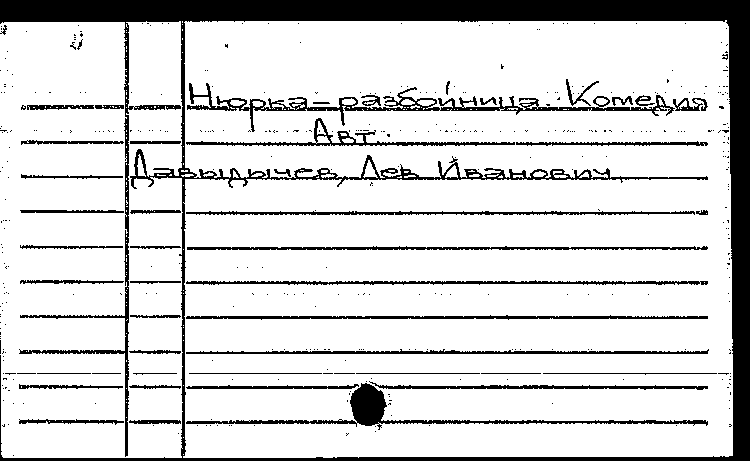 Нюрка-разбойница. Комедия.
Авт.
Давыдычев, Лев Иванович.